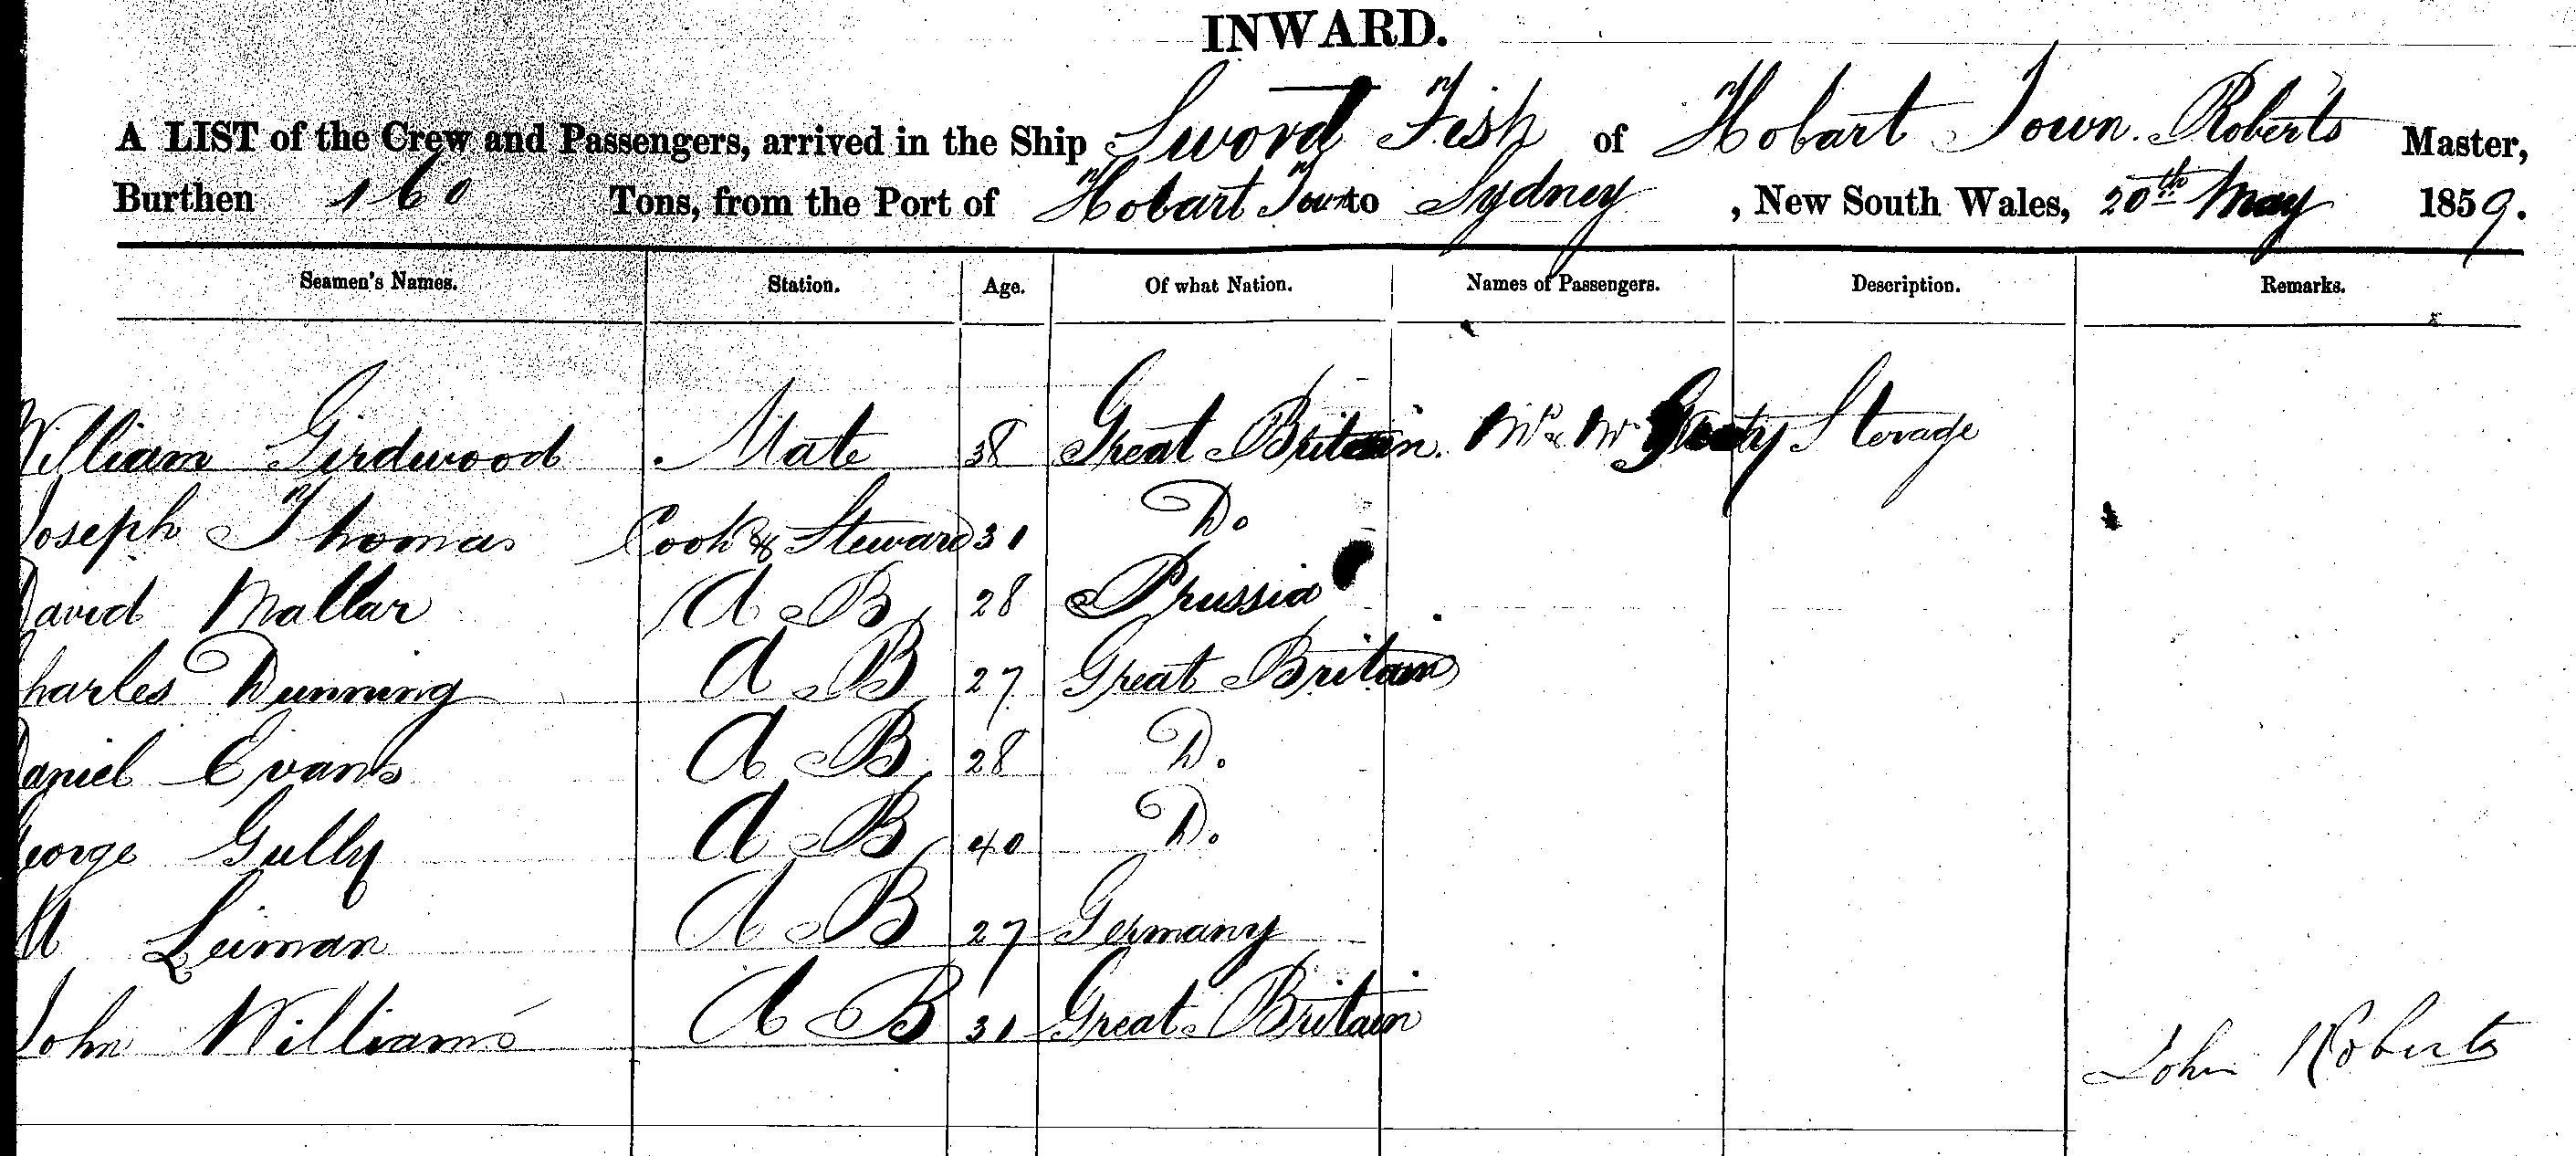 INWARD.
A LIST of the Crew and Passengers, arrived in the Ship Sword Fish of Hobart Town. Roberts Master,
Burthen 160 Tons, from the Port of Hobart Town to Sydney, New South Wales, 20th May 1859.
Seamen's Names. Station. Age. Of what Nation. Names of Passengers. Description. Remarks.
William Girdwood Mate 38 Great Britain. Mr Sterage
Joseph Thomas Cook & Steward 31 Do
David Mallar A B 28 Prussia
Charles Dunning A B 27 Great Britain
Daniel Evans A B 28 Do
George Gully A B 40 Do
Leiman A B 27 Germany
John Williams A B 31 Great Britain
John Roberts